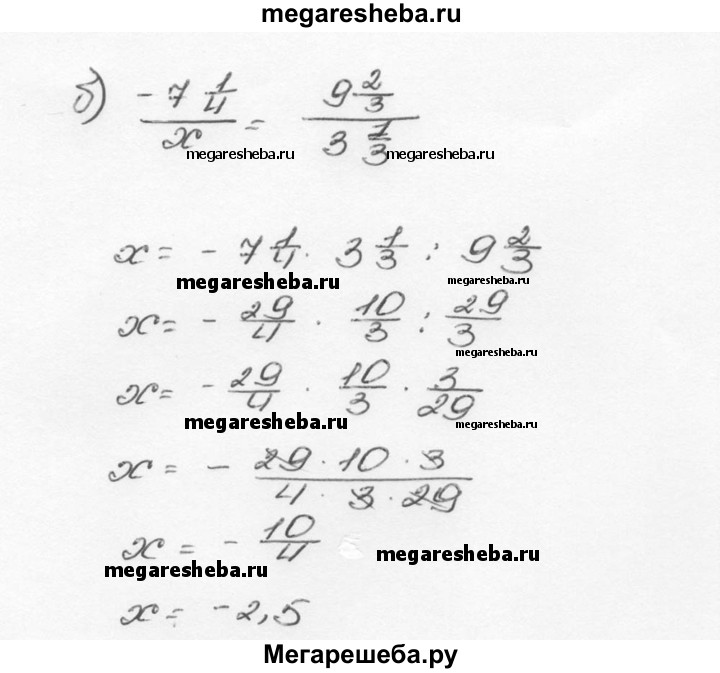 megaresheba.ru
б) -7 1/4 / x = 9 2/3 / 3 1/3
megaresheba.ru megaresheba.ru
x = - 7 1/4 · 3 1/3 : 9 2/3
megaresheba.ru megaresheba.ru
x = - 29/4 · 10/3 : 29/3
megaresheba.ru
x = - 29/4 · 10/3 · 3/29
megaresheba.ru megaresheba.ru
x = - 29 · 10 · 3 / 4 · 3 · 29
x = - 10/4
megaresheba.ru megaresheba.ru
x = -2,5
Мегарешеба.ру